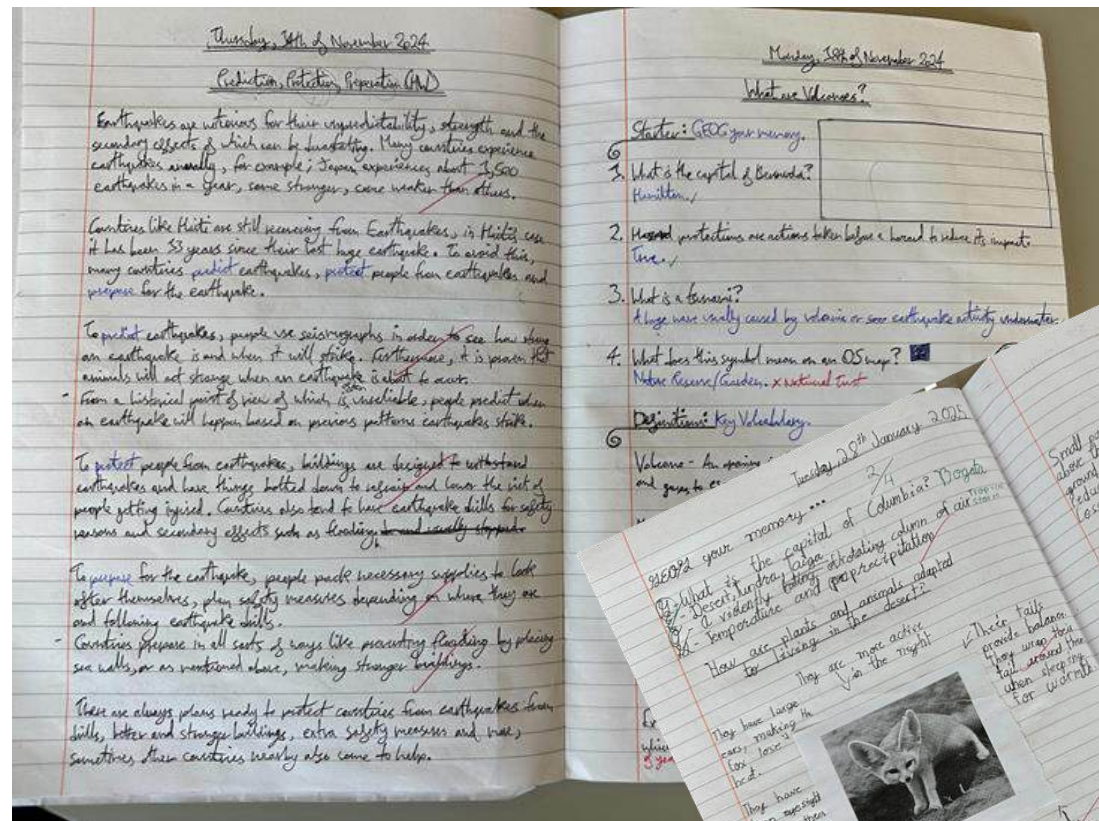 Thursday, 14th of November 2024
Prediction, Protection, Preparation (HW)
Earthquakes are notorious for their unpredictability, strength and the
secondary effects of which can be devastating. Many countries experience
earthquakes annually, for example; Japan experiences about 1,500
earthquakes in a year, some stronger, some weaker than others.
Countries like Haiti are still recovering from Earthquakes, in Haiti's case
it has been 53 years since their last huge earthquake. To avoid this,
many countries predict earthquakes, protect people from earthquakes and
prepare for the earthquake.
To predict earthquakes, people use seismographs in order to see how strong
an earthquake is and when it will strike. Furthermore, it is proven that
animals will act strange when an earthquake is about to occur.
- From a historical point of view of which is often unreliable, people predict when
an earthquake will happen based on previous patterns earthquakes strike.
To protect people from earthquakes, buildings are designed to withstand
earthquakes and have things bolted down to and lower the risk of
people getting injured. Countries also tend to have earthquake drills for safety
reasons and secondary effects such as flooding.
To prepare for the earthquake, people pack necessary supplies to look
after themselves, plan safety measures depending on where they are
and following earthquake drills.
- Countries prepare in all sorts of ways like preventing flooding by placing
sea walls, or as mentioned above, making stronger buildings.
There are always plans ready to protect countries from earthquakes from
drills, better and stronger buildings, extra safety measures and more,
sometimes other countries nearby also come to help.
Monday, 18th of November 2024
What are Volcanoes?
Starter: GEOG your memory.
1. What is the capital of Bermuda?
Hamilton.
2. Hazard protections are actions taken before a hazard to reduce its impact.
True.
3. What is a tsunami?
A huge wave usually caused by volcanic or earthquake activity underwater.
4. What does this symbol mean on an OS map?
Nature Reserve/Garden. x National Trust
Definitions: Key Vocabulary.
Volcano - An opening
and gases to
Tuesday 28th January 2025
GEOG your memory...
2/4
Q1- What is the capital of Columbia? Bogota
Desert, tundra, taiga
A violently rotating column of air tropical storm
Temperature and precipitation
How are plants and animals adapted
to living in the desert?
They are more active
in the night
Their tails
provide balance.
They wrap their
tail around them
when sleeping
for warmth.
They have large
ears, making the
fox lose
heat.
They have
eyesight
Small
above the
ground